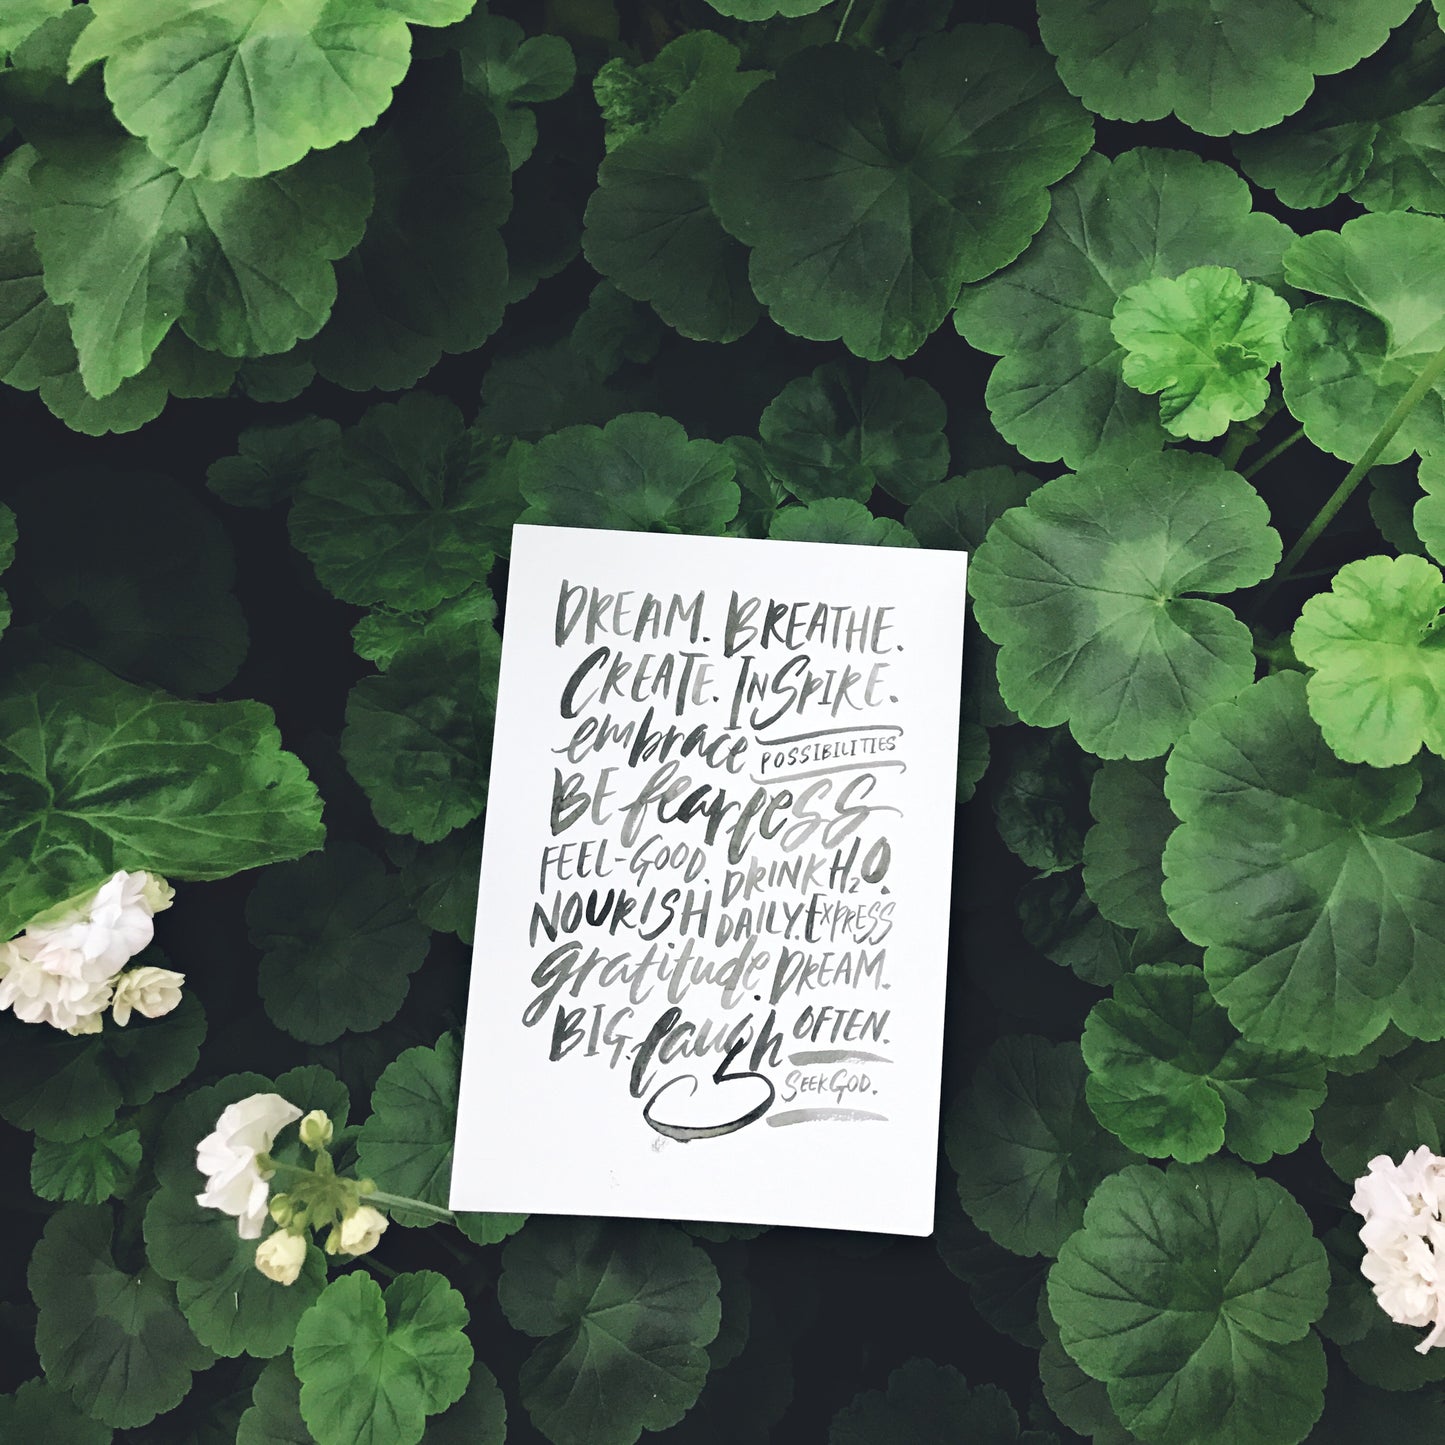 DREAM. BREATHE.
CREATE. INSPIRE.
embrace POSSIBILITIES
BE fearless
FEEL-GOOD. DRINK H₂O.
NOURISH DAILY. EXPRESS
gratitude. DREAM.
BIG. laugh OFTEN.
SEEK GOD.